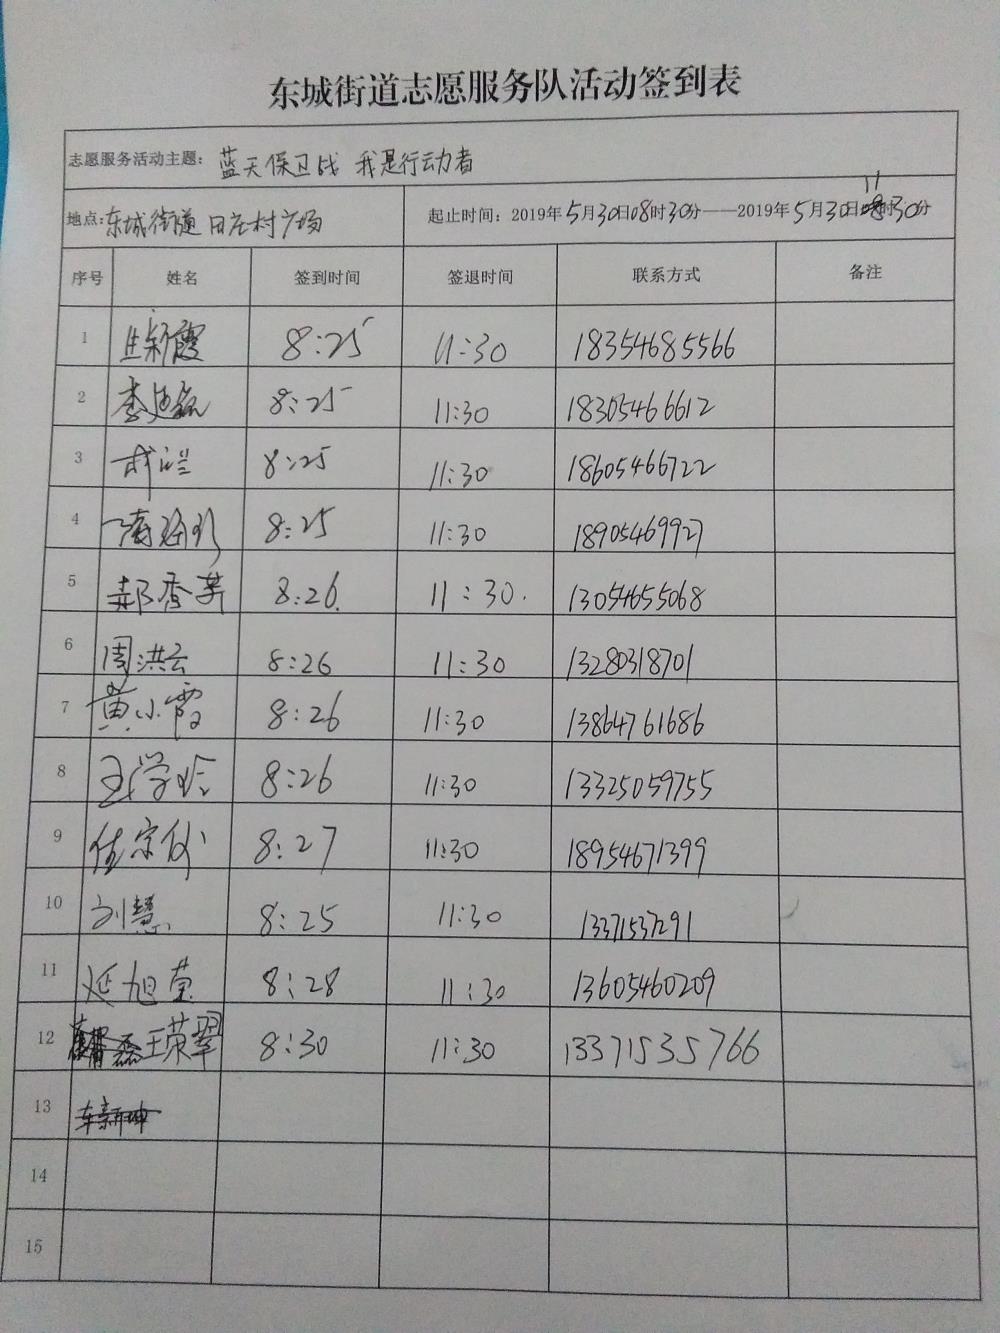 东城街道志愿服务队活动签到表
志愿服务活动主题：蓝天保卫战 我是行动者
地点：东城街道田庄村广场 起止时间：2019年5月30日08时30分——2019年5月30日11时30分
序号 姓名 签到时间 签退时间 联系方式 备注
1 8:25 11:30 18354685566
2 8:25 11:30 18305466612
3 8:25 11:30 18605466722
4 8:25 11:30 18905469927
5 郝香芹 8:26. 11:30. 13054655068
6 周洪云 8:26 11:30 13280318701
7 黄小霞 8:26 11:30 13864761686
8 王学玲 8:26 11:30 13325059755
9 8:27 11:30 18954671399
10 刘慧 8:25 11:30 13371537291
11 延旭莹 8:28 11:30 13605460209
12 王荣翠 8:30 11:30 13371535766
13 车新坤
14
15